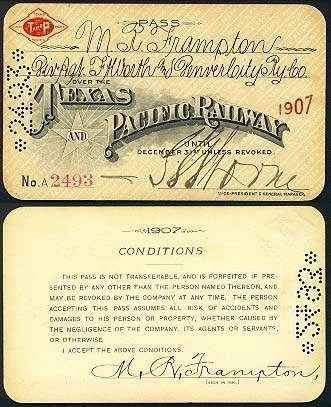 PASS
M R Frampton
Div Agt Ft Worth & Denver City Ry Co
OVER THE
TEXAS
AND PACIFIC RAILWAY
1907
UNTIL
DECEMBER 31ST UNLESS REVOKED.
No. A 2493
VICE-PRESIDENT & GENERAL MANAGER.
1907
CONDITIONS
THIS PASS IS NOT TRANSFERABLE, AND IS FORFEITED IF PRE-
SENTED BY ANY OTHER THAN THE PERSON NAMED THEREON, AND
MAY BE REVOKED BY THE COMPANY AT ANY TIME. THE PERSON
ACCEPTING THIS PASS ASSUMES ALL RISK OF ACCIDENTS AND
DAMAGES TO HIS PERSON OR PROPERTY, WHETHER CAUSED BY
THE NEGLIGENCE OF THE COMPANY, ITS AGENTS OR SERVANTS,
OR OTHERWISE.
I ACCEPT THE ABOVE CONDITIONS.
M. R. Frampton,
(SIGN IN INK.)